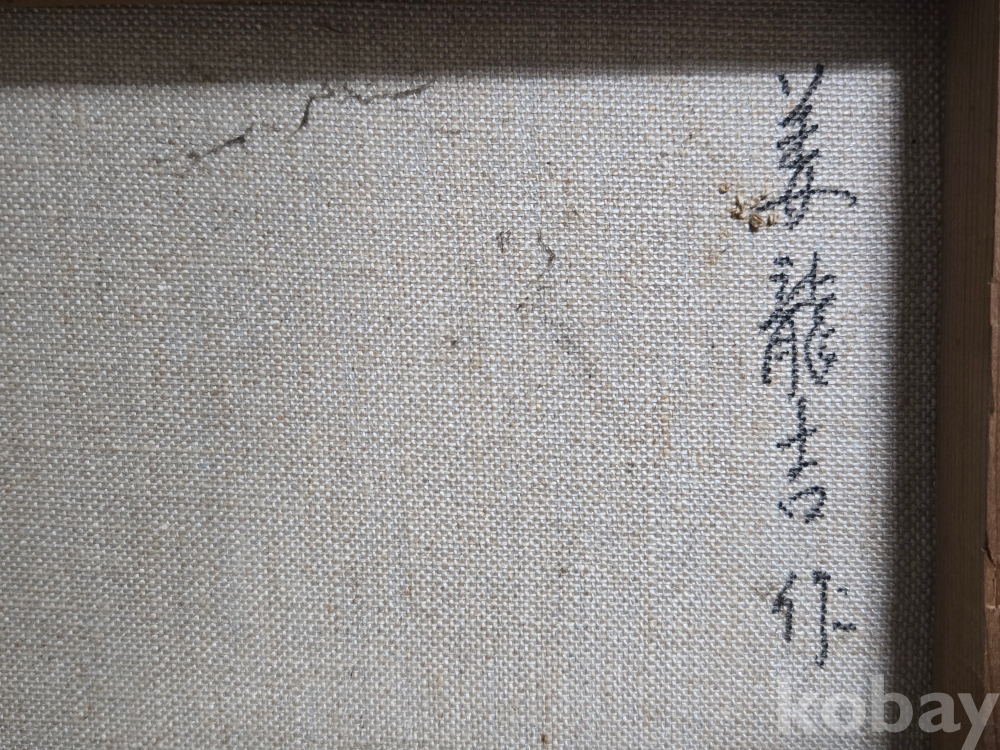 姜龍吉作
kobay